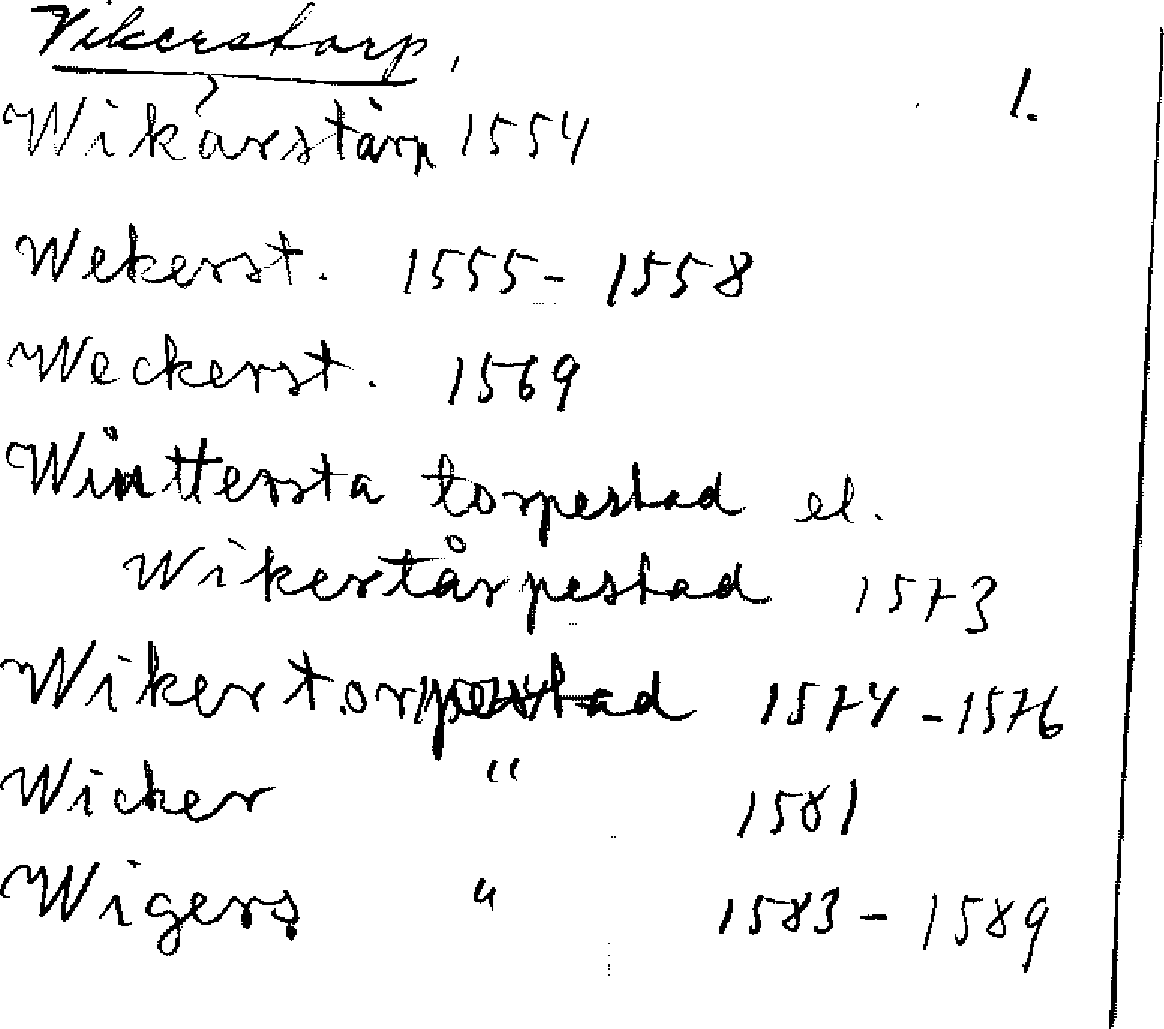 Vikerstorp,
1.
Wikarstårp 1554
Wekerst. 1555 - 1558
Weckerst. 1569
Winttersta torpestad el.
Wikertårpestad 1573
Wikertorpestad 1574 - 1576
Wicker " 1581
Wigers " 1583 - 1589